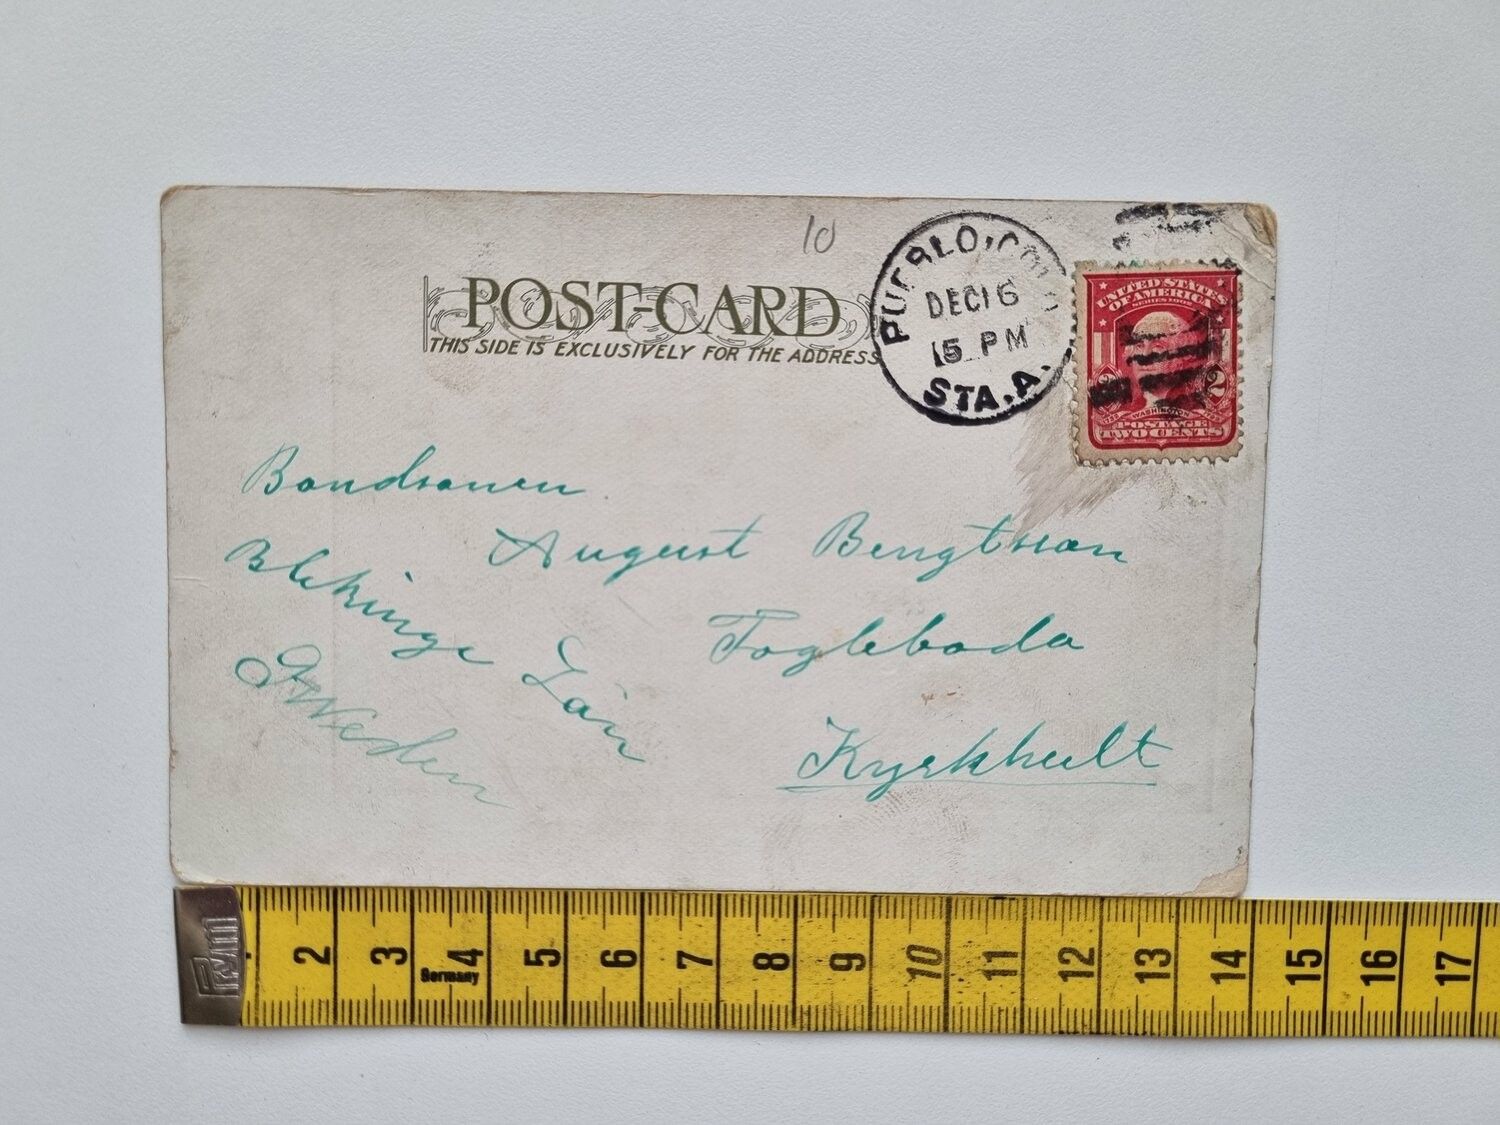 10
POST-CARD
THIS SIDE IS EXCLUSIVELY FOR THE ADDRESS
PUEBLO, COLO
DEC 16
15 PM
STA. A.
UNITED STATES
OF AMERICA
SERIES 1902
2 2
WASHINGTON
POSTAGE
TWO CENTS
Bondsonen
August Bengtsson
Fogleboda
Kyrkhult
Blekinge Län
Sweden
Prym
Germany
2 3 4 5 6 7 8 9 10 11 12 13 14 15 16 17